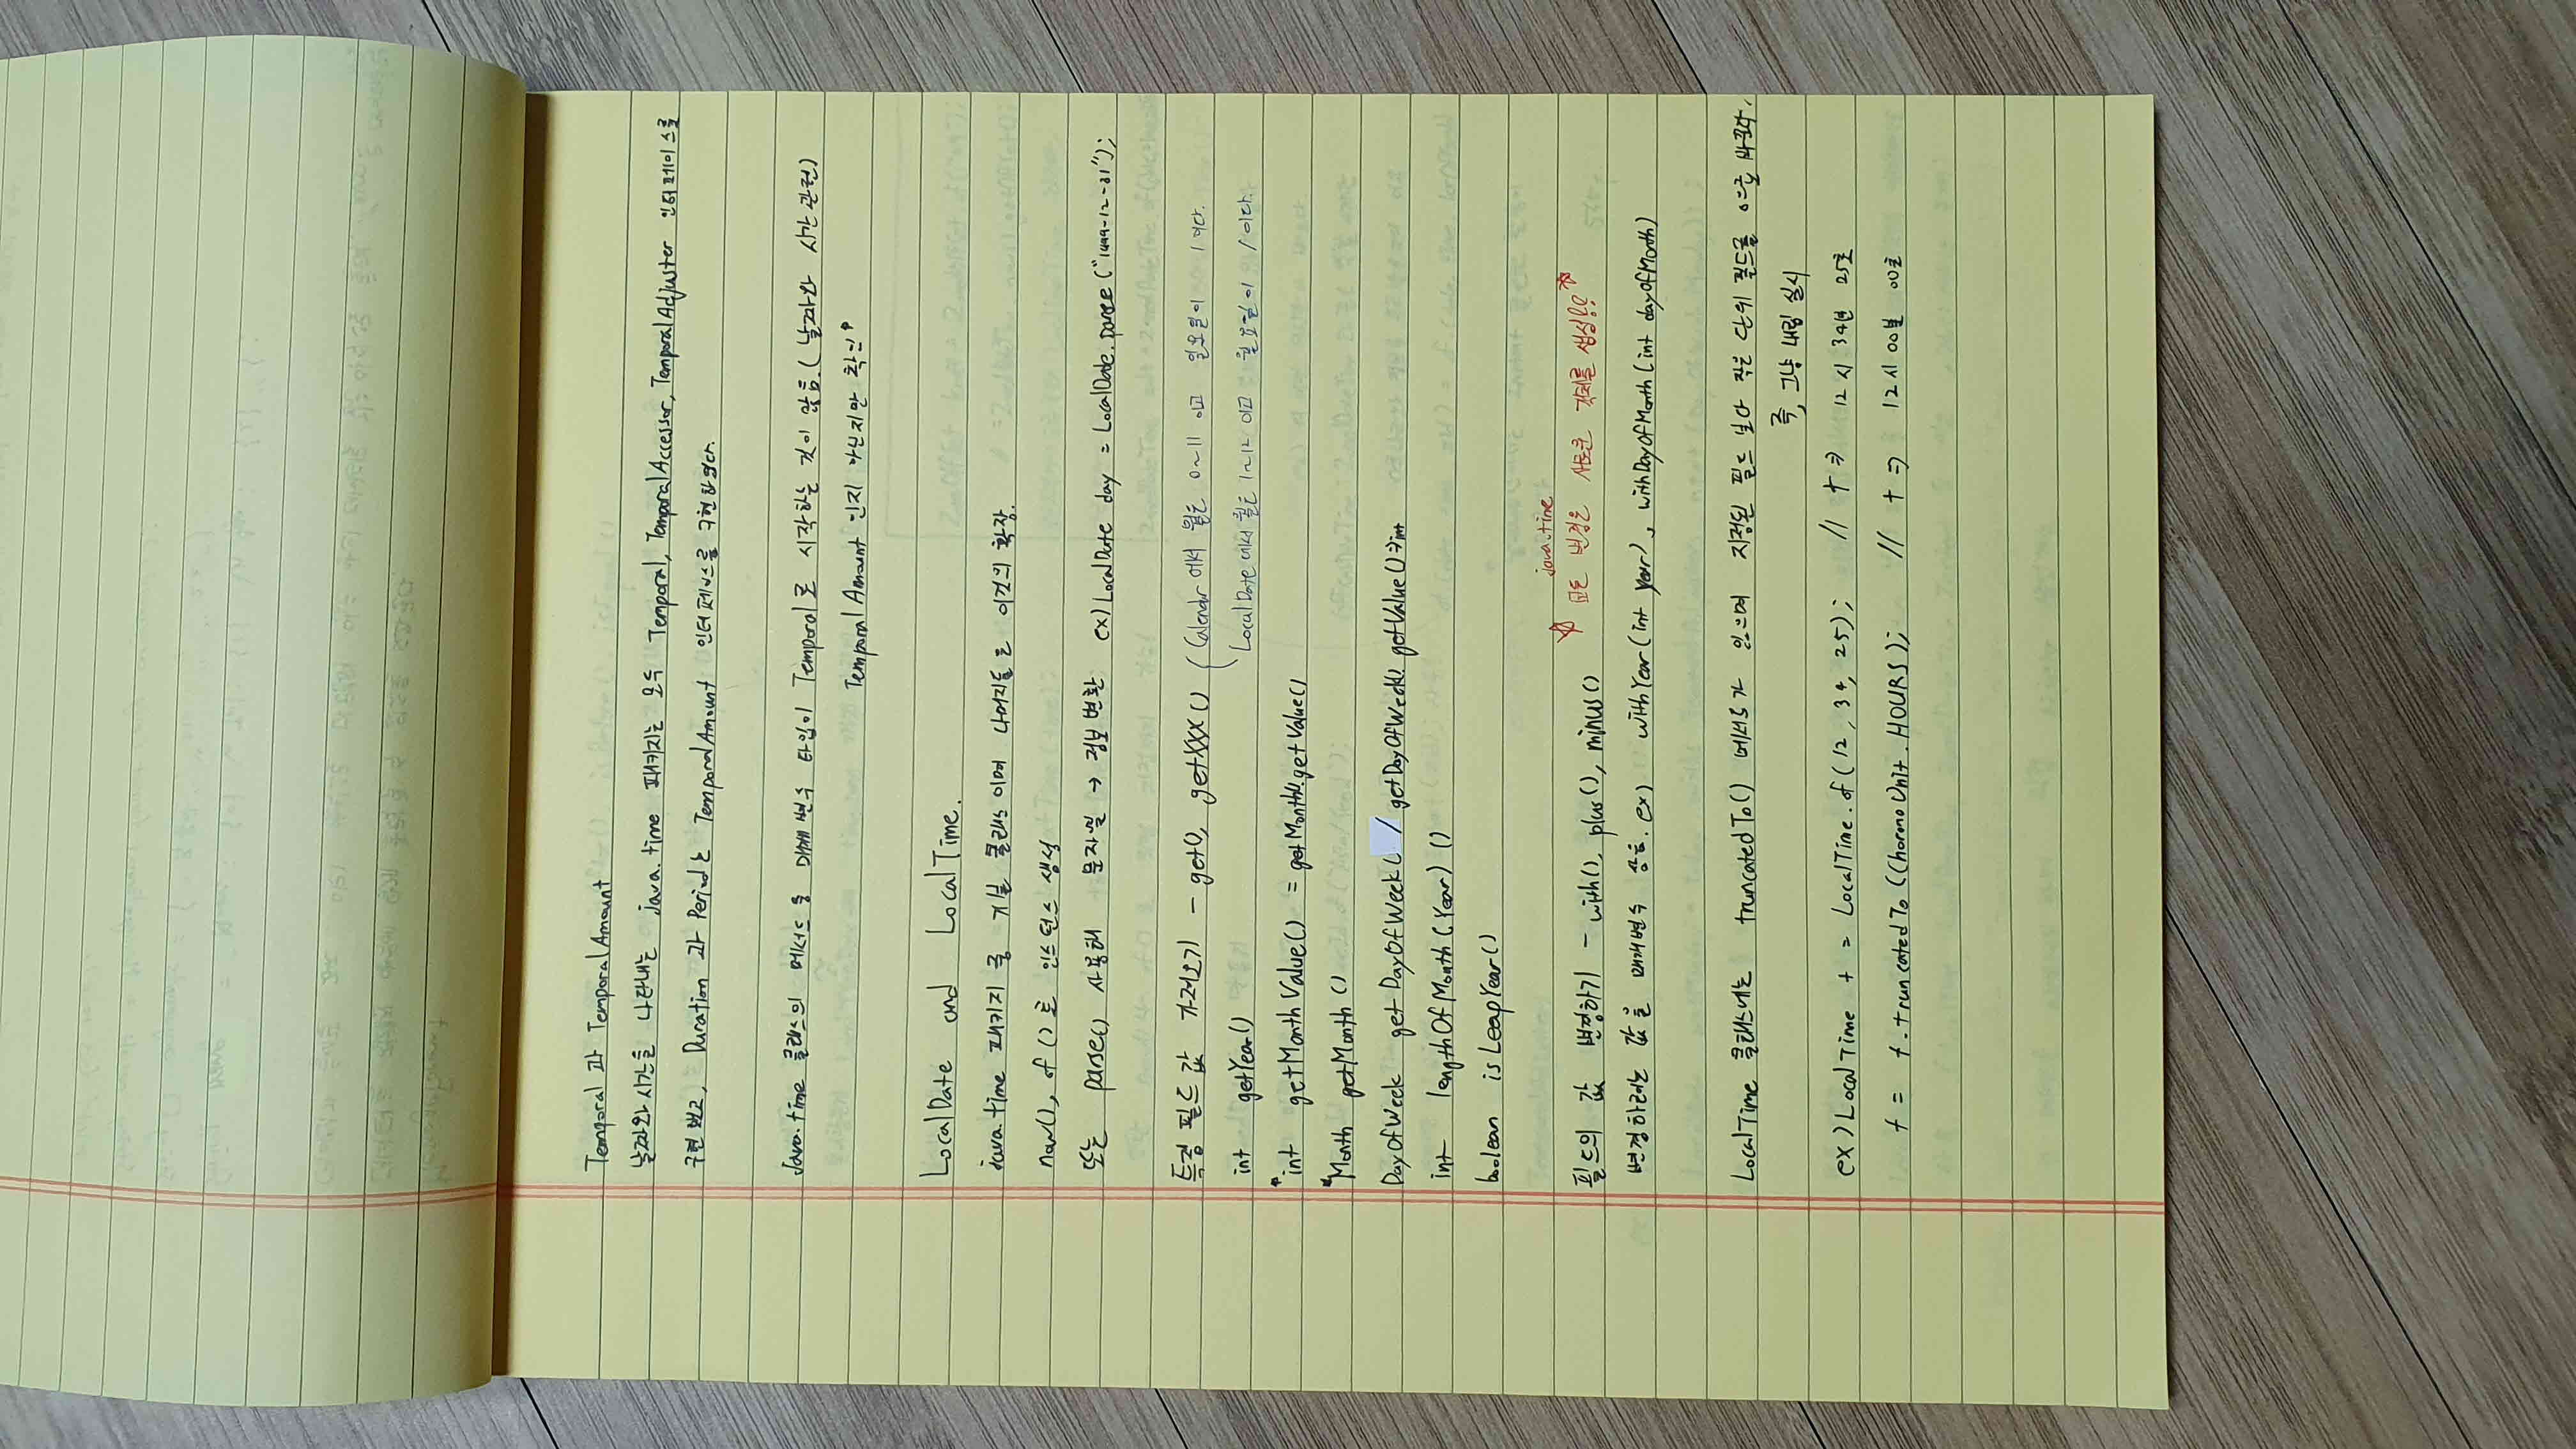 Temporal 과 TemporalAmount
날짜와 시간을 나타내는 java.time 패키지는 모두 Temporal, TemporalAccessor, TemporalAdjuster 인터페이스를
구현 했고, Duration 과 Period는 TemporalAmount 인터페이스를 구현하였다.
java.time 클래스의 메서드 중 매개변수 타입이 Temporal로 시작하는 것이 많음. (날짜와 시간 관련)
TemporalAmount 인지 아닌지만 확인
LocalDate and LocalTime.
java.time 패키지 중 기본 클래스 이며 나머지들은 이것의 확장.
now(), of()로 인스턴스 생성
또는 parse() 사용해 문자열 → 정보 변환 ex) LocalDate day = LocalDate.parse("1999-12-31");
특정 필드 값 가져오기 - get(), getXXX() ( Calendar 에서 월은 0~11 이고 일요일이 1 이다.
LocalDate 에서 월은 1~12 이고 월요일이 1 이다.
int getYear()
*int getMonthValue() = getMonth().getValue()
*Month getMonth()
DayOfWeek getDayOfWeek( / getDayOfWeek().getValue() ⇒ int
int lengthOfMonth(Year) ()
boolean isLeapYear()
java.time
필드의 값 변경하기 - with(), plus(), minus() ☆ 모든 변경은 새로운 객체를 생성!! ☆
변경하려는 값을 매개변수 ex) withYear(int year), withDayOfMonth(int dayOfMonth)
LocalTime 클래스에는 truncatedTo() 메서드가 있으며 지정된 필드 보다 작은 단위 필드를 0으로 바꾼다.
즉, 그냥 내림 실시
ex) LocalTime t = LocalTime.of(12, 34, 25); // t ⇒ 12시 34분 25초
t = t.truncatedTo(ChoronoUnit.HOURS); // t ⇒ 12시 00분 00초